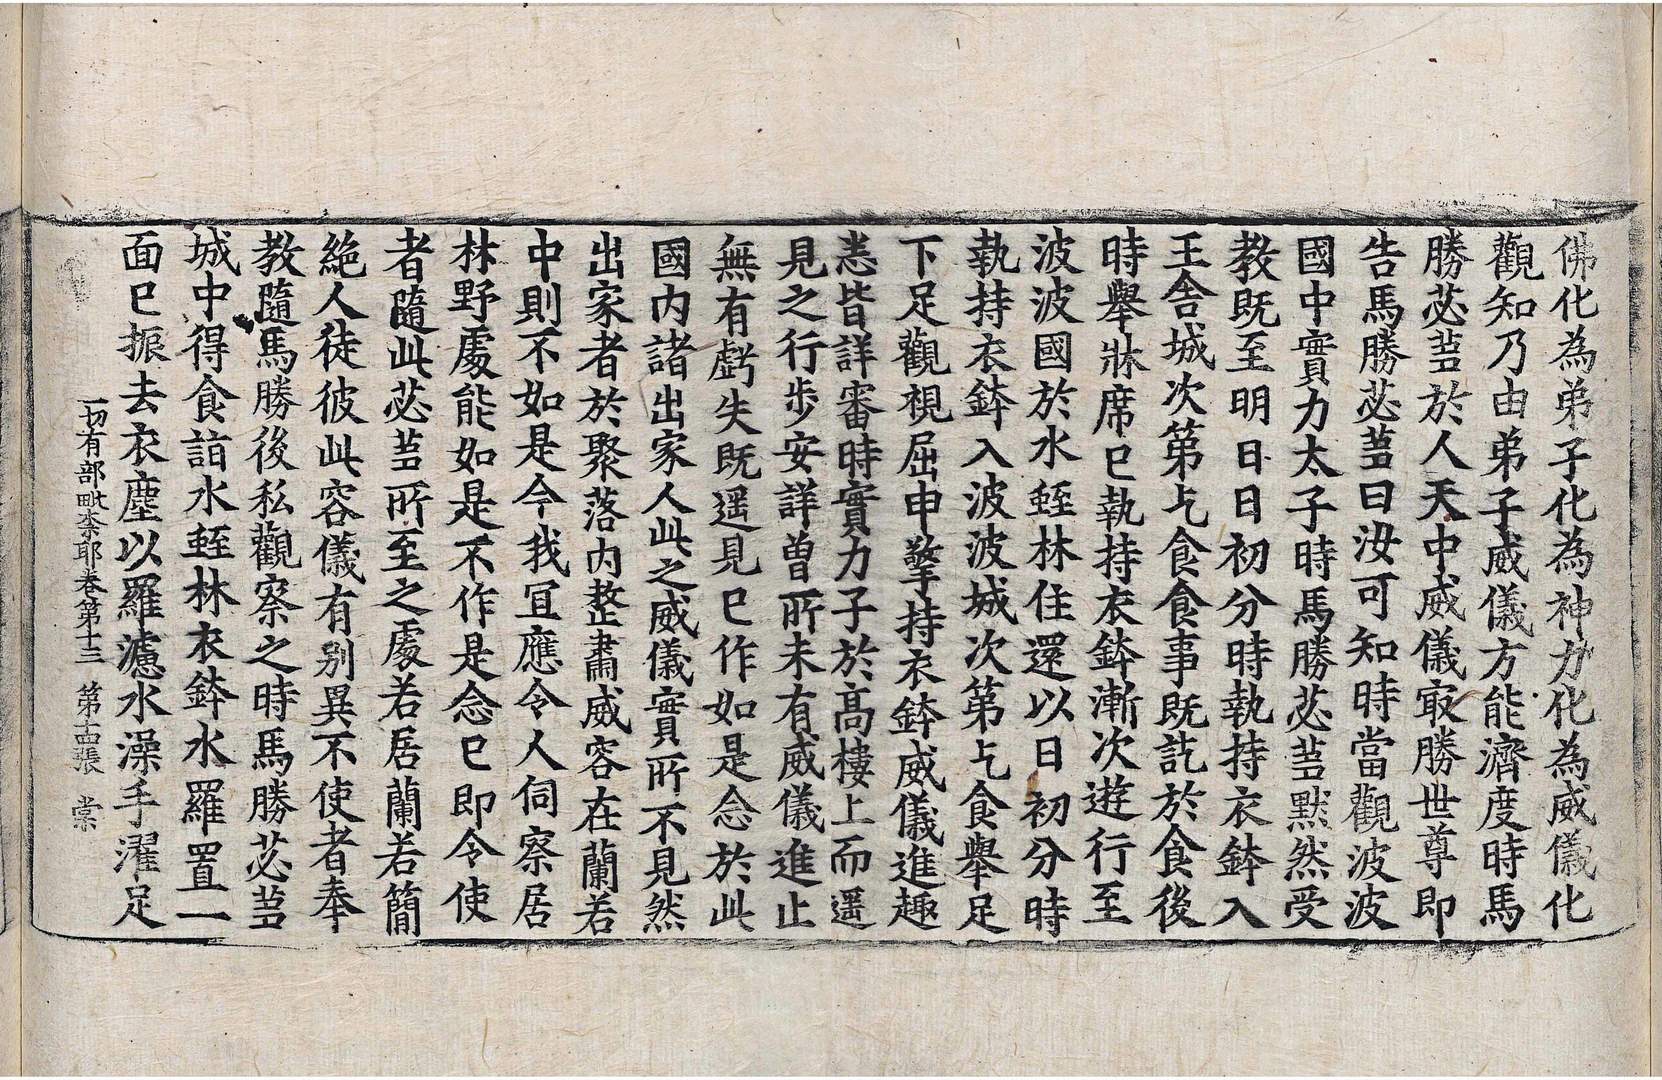 佛化為弟子化為神力化為威儀化
觀知乃由弟子威儀方能濟度時馬
勝苾蒭於人天中威儀㝡勝世尊即
告馬勝苾蒭曰汝可知時當觀波波
國中實力太子時馬勝苾蒭默然受
教既至明日日初分時執持衣鉢入
王舍城次第乞食食事既訖於食後
時舉牀席已執持衣鉢漸次遊行至
波波國於水蛭林住還以日初分時
執持衣鉢入波波城次第乞食舉足
下足觀視屈申擎持衣鉢威儀進趣
悉皆詳審時實力子於高樓上而遥
見之行步安詳曾所未有威儀進止
無有虧失既遥見已作如是念於此
國內諸出家人此之威儀實所不見然
出家者於聚落內整肅威容在蘭若
中則不如是今我宜應令人伺察居
林野處能如是不作是念已即令使
者隨此苾蒭所至之處若居蘭若簡
絶人徒彼此容儀有別異不使者奉
教隨馬勝後私觀察之時馬勝苾蒭
城中得食詣水蛭林衣鉢水羅置一
面已振去衣塵以羅濾水澡手濯足
一切有部毗奈耶卷第十三 第十四張 棠